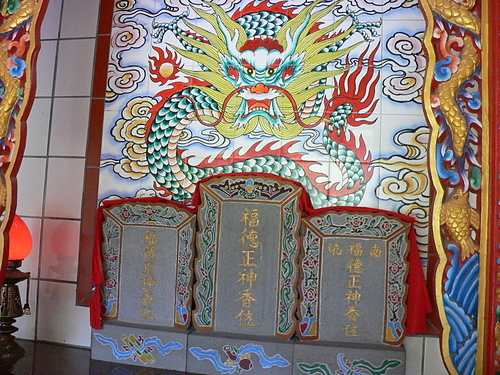 福德正神香位
福德正神香位
南坑
福德正神香位